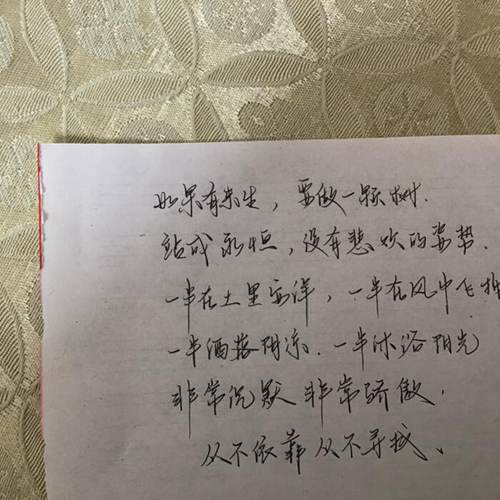 如果有来生，要做一颗树．
站成永恒，没有悲欢的姿势．
一半在土里安洋，一半在风中飞
一半洒落阴凉．一半沐浴阳光
非常沉默 非常骄傲．
从不依靠 从不寻找、